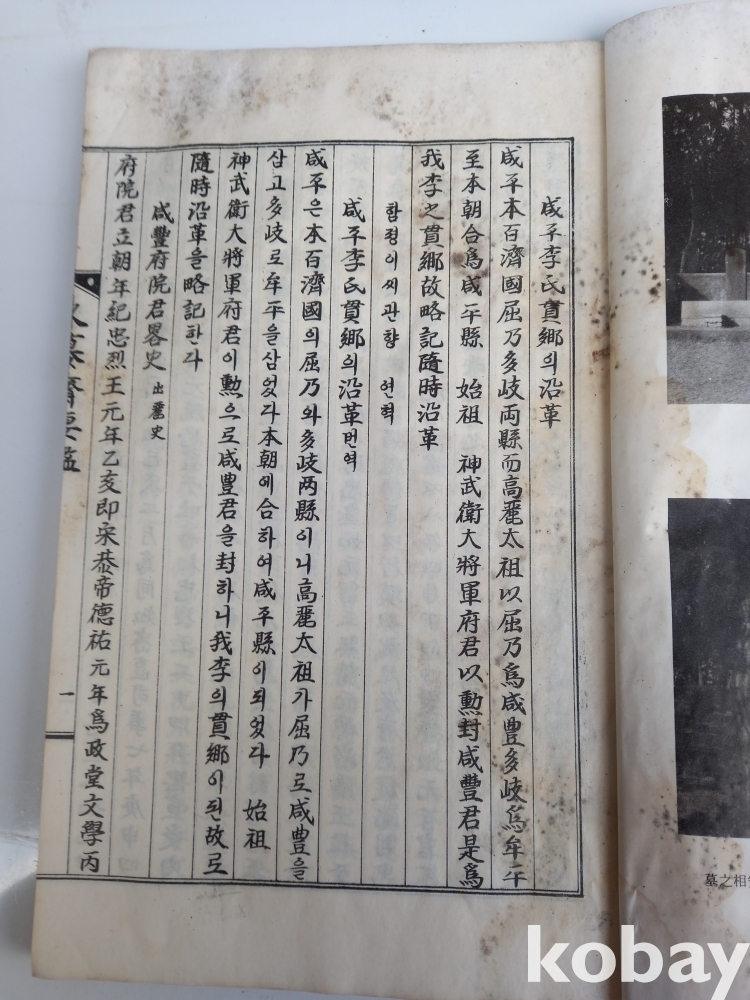 咸平李氏貫鄉의沿革
咸平本百濟國屈乃多岐両縣而高麗太祖以屈乃爲咸豊多岐爲牟平
至本朝合爲咸平縣 始祖 神武衛大將軍府君以勳封咸豐君是爲
我李之貫鄉故略記隨時沿革
함평이씨관향 연혁
咸平李氏貫鄉의沿革번역
咸平은本百濟國의屈乃와多岐两縣이니高麗太祖가屈乃로咸豊을
삼고多岐로牟平을삼엇다本朝에合하여咸平縣이되엿다 始祖
神武衛大將軍府君이勳으로咸豊君을封하니我李의貫鄉이된故로
隨時沿革을略記한다
咸豐府院君畧史 出麗史
府院君立朝年紀忠烈王元年乙亥即宋恭帝德祐元年爲政堂文學丙
一
墓之相
kobay